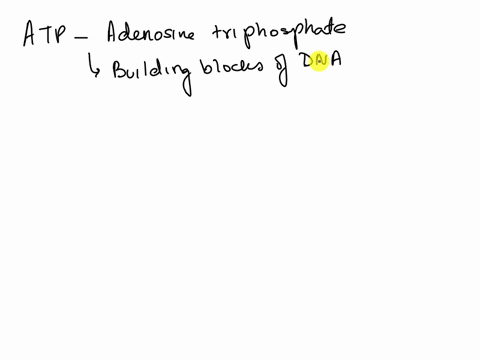 ATP - Adenosine triphosphate
↳ Building blocks of DNA